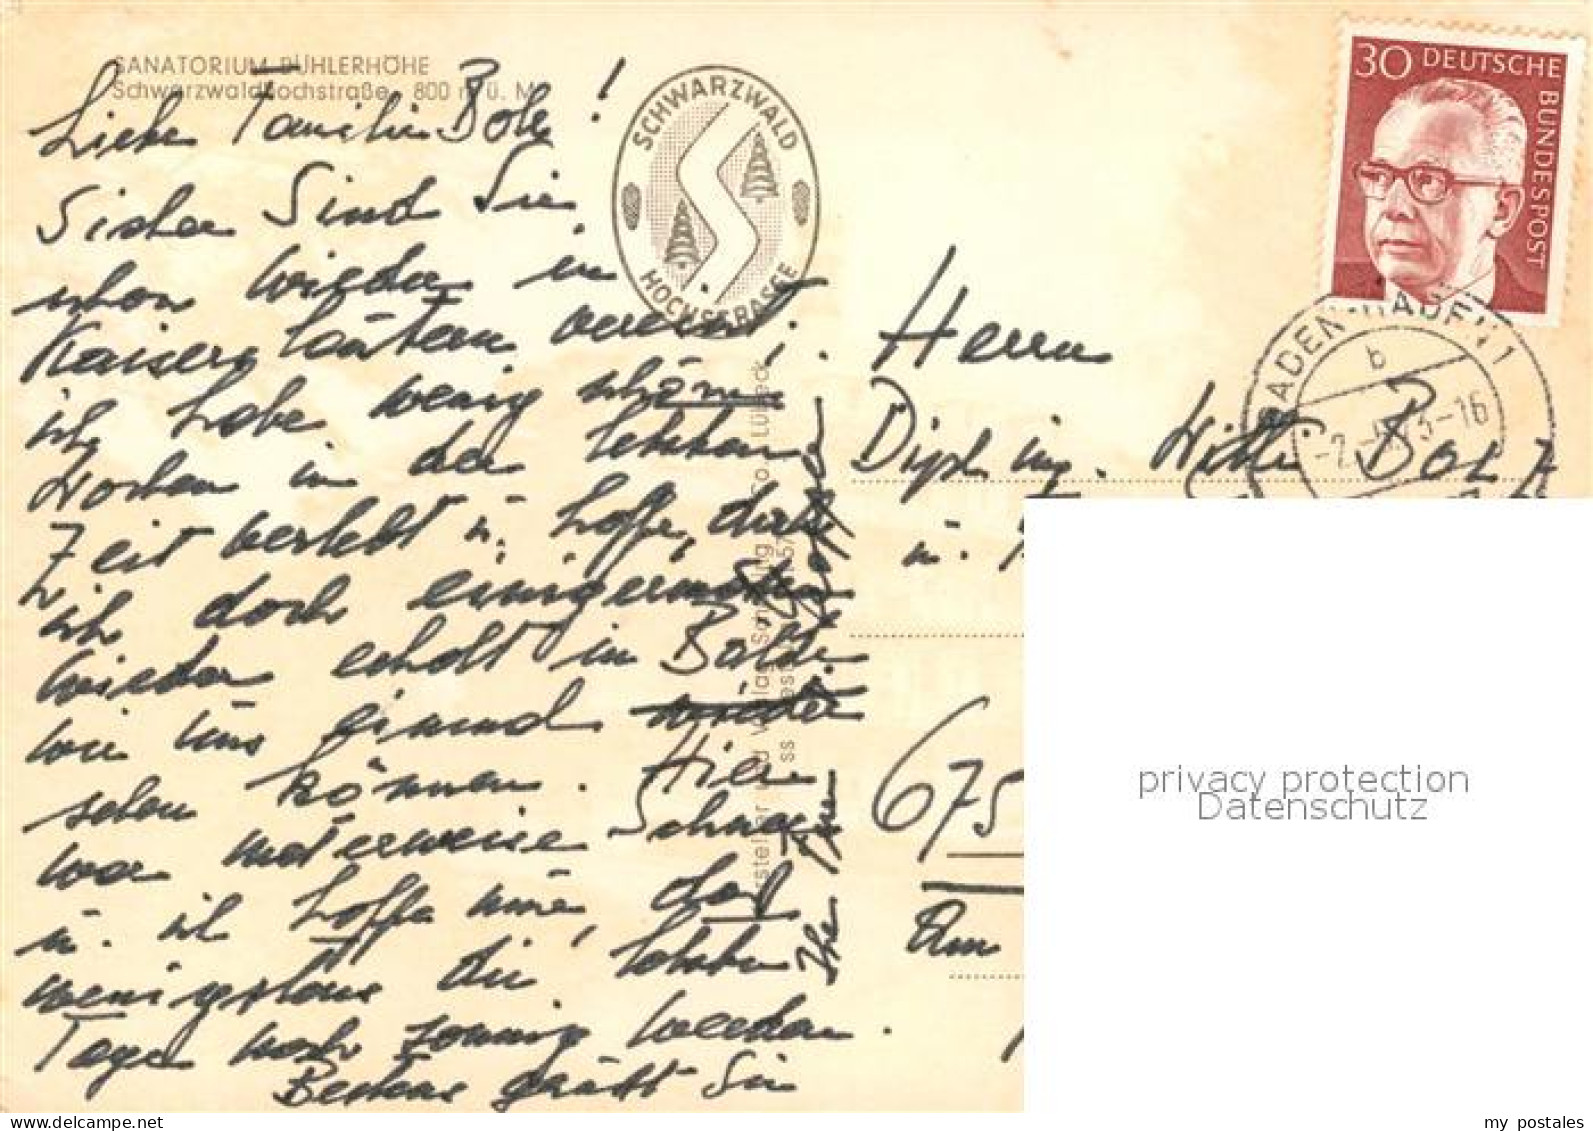 SANATORIUM BÜHLERHÖHE
Schwarzwaldhochstraße 800 m ü. M.
Liebe Familie Bolz!
Sicher sind Sie
schon wieder in
Kaiserslautern vereint,
ich habe wenig schöne
Wochen in der letzten
Zeit verlebt u. hoffe, daß
ich doch einigermaßen
wieder erholt in Bälde
wir uns einmal wieder
sehen können. Hier
war Schnee
u. ich hoffe nur, daß
wenigstens die letzten
Tage noch sonnig werden.
Bestens grüßt Sie
Ihre
SCHWARZWALD
HOCHSTRASSE
30 DEUTSCHE
BUNDESPOST
BADEN-BADEN 1
b
-2.-4.73-16
Herrn
Dipl. ing. Willi Bolz
u.
675
Am
privacy protection
Datenschutz
my postales